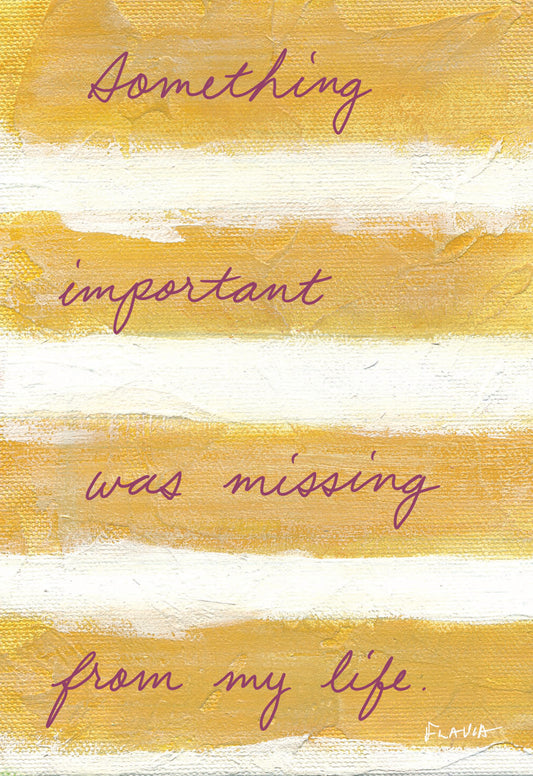 Something
important
was missing
from my life.
FLAVIA